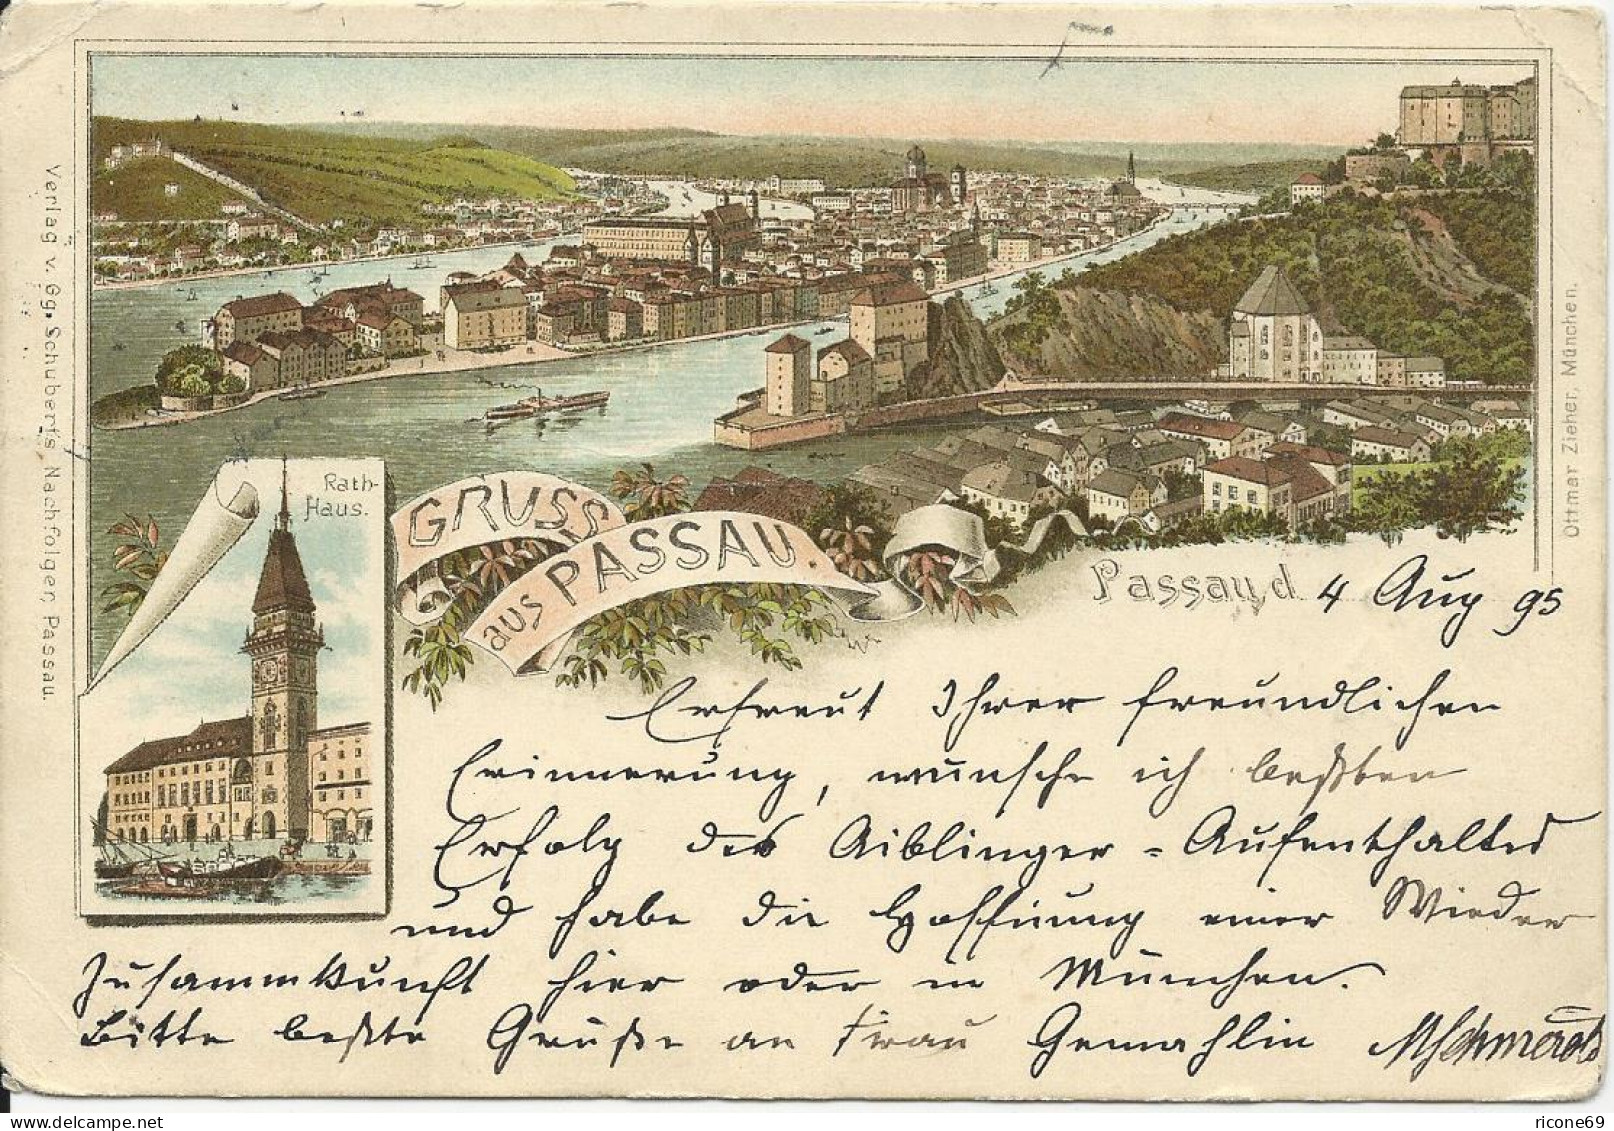 Verlag v. Gg. Schubert's Nachfolger, Passau.
Ottmar Zieher, München.
Rath-
Haus.
GRUSS
aus PASSAU.
Passau, d 4 Aug 95
Erfreut Ihrer freundlichen
Erinnerung, wünsche ich beßten
Erfolg des Aiblinger-Aufenthaltes
und habe die Hoffnung einer Wieder
Zusammkunft hier oder in München.
Bitte beßte Grüße an Frau Gemahlin
ricone69